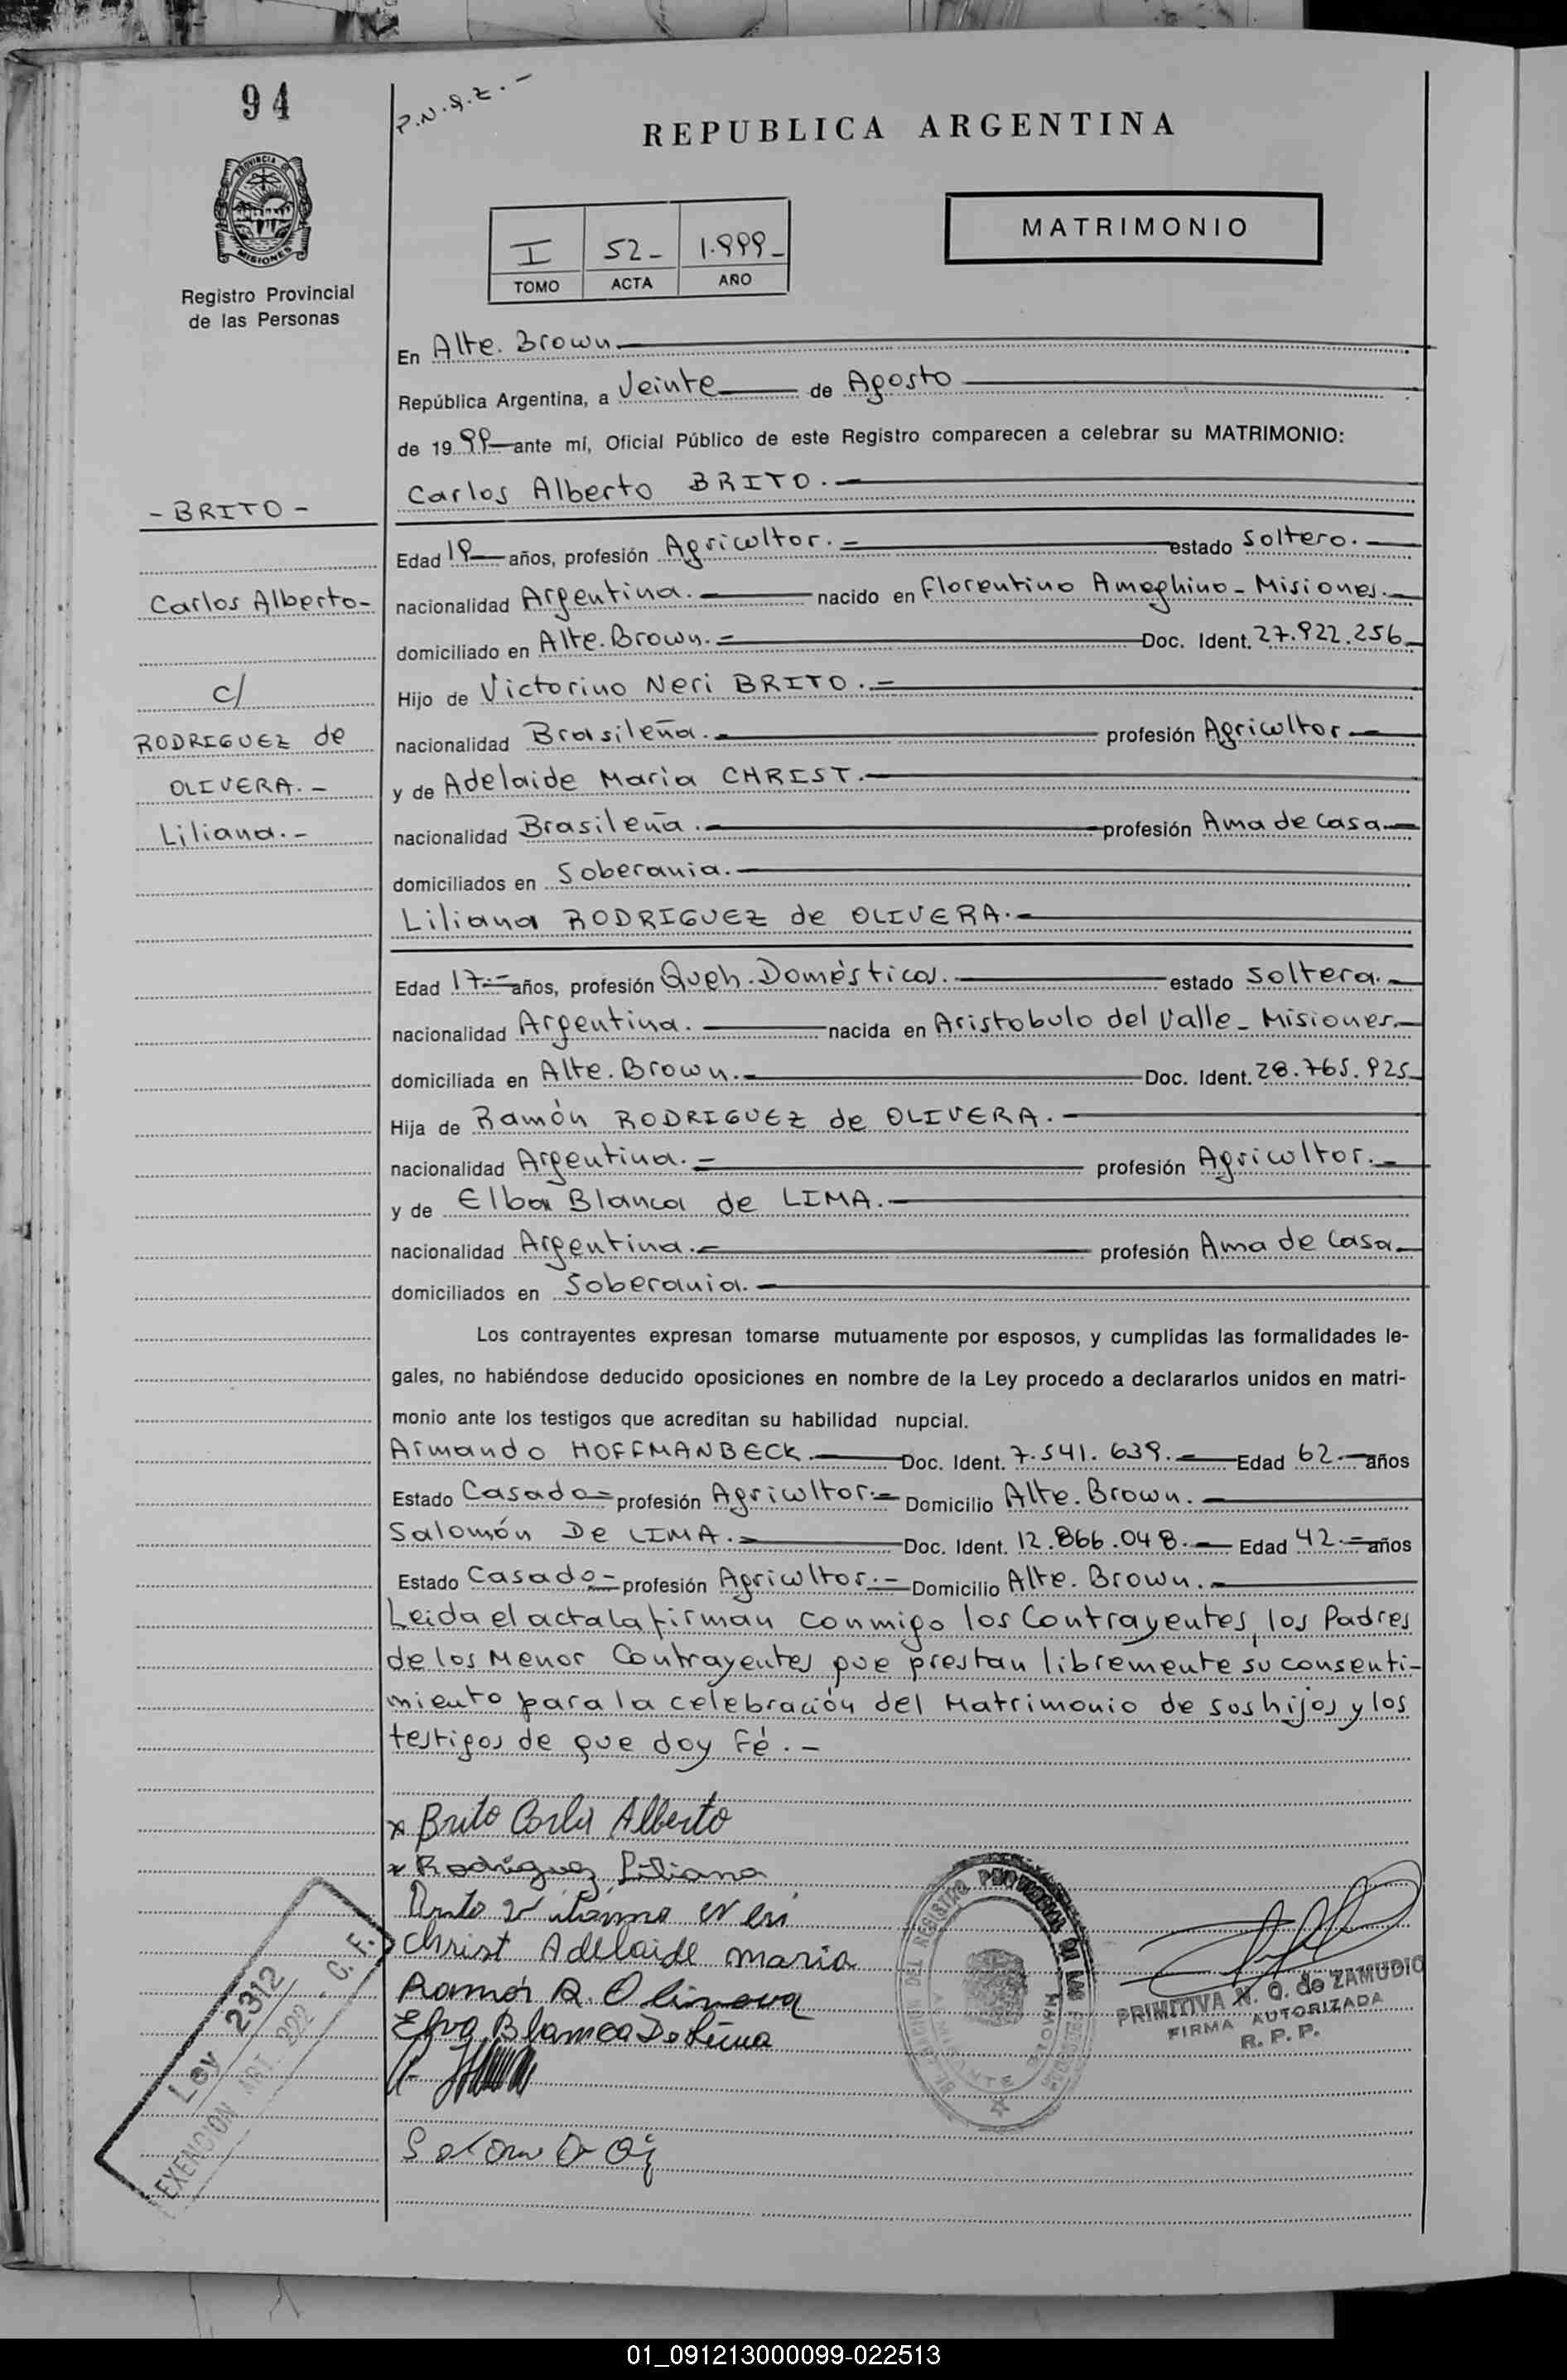 94
P.N.Q.Z.-
REPUBLICA ARGENTINA
PROVINCIA DE
MISIONES
Registro Provincial
de las Personas
I 52- 1.999-
TOMO ACTA AÑO
MATRIMONIO
En Alte. Brown
República Argentina, a Veinte de Agosto
de 1999 ante mí, Oficial Público de este Registro comparecen a celebrar su MATRIMONIO:
Carlos Alberto BRITO.-
- BRITO -
Carlos Alberto-
c/
RODRIGUEZ de
OLIVERA.-
Liliana.-
Edad 19 años, profesión Agricultor.- estado Soltero.-
nacionalidad Argentina.- nacido en Florentino Ameghino - Misiones.-
domiciliado en Alte. Brown.- Doc. Ident. 27.922.256-
Hijo de Victorino Neri BRITO.-
nacionalidad Brasileña.- profesión Agricultor-
y de Adelaide Maria CHRIST.-
nacionalidad Brasileña.- profesión Ama de Casa.-
domiciliados en Soberania.-
Liliana RODRIGUEZ de OLIVERA.-
Edad 17.- años, profesión Queh. Domésticos.- estado Soltera.-
nacionalidad Argentina.- nacida en Aristobulo del Valle - Misiones.-
domiciliada en Alte. Brown.- Doc. Ident. 28.765.925-
Hija de Ramón RODRIGUEZ de OLIVERA.-
nacionalidad Argentina.- profesión Agricultor.-
y de Elba Blanca de LIMA.-
nacionalidad Argentina.- profesión Ama de Casa.-
domiciliados en Soberania.-
Los contrayentes expresan tomarse mutuamente por esposos, y cumplidas las formalidades le-
gales, no habiéndose deducido oposiciones en nombre de la Ley procedo a declararlos unidos en matri-
monio ante los testigos que acreditan su habilidad nupcial.
Armando HOFFMANBECK.- Doc. Ident. 7.541.639.- Edad 62.- años
Estado Casado- profesión Agricultor.- Domicilio Alte. Brown.-
Salomón De LIMA.- Doc. Ident. 12.866.048.- Edad 42.- años
Estado Casado.- profesión Agricultor.- Domicilio Alte. Brown.-
Leida el acta la firman conmigo los Contrayentes, los Padres
de los Menor Contrayentes que prestan libremente su consenti-
miento para la celebración del Matrimonio de sus hijos y los
testigos de que doy Fé.-
x Brito Carlos Alberto
x Rodriguez Liliana
Christ Adelaide maria
Ramón R. Olivera
Elva Blanca De Lima
REGISTRO PROVINCIAL DE LAS
MISIONES
PRIMITIVA N. Q. de ZAMUDIO
FIRMA AUTORIZADA
R. P. P.
Ley 2312
EXENCION ART. 202 - C. F.
01_091213000099-022513